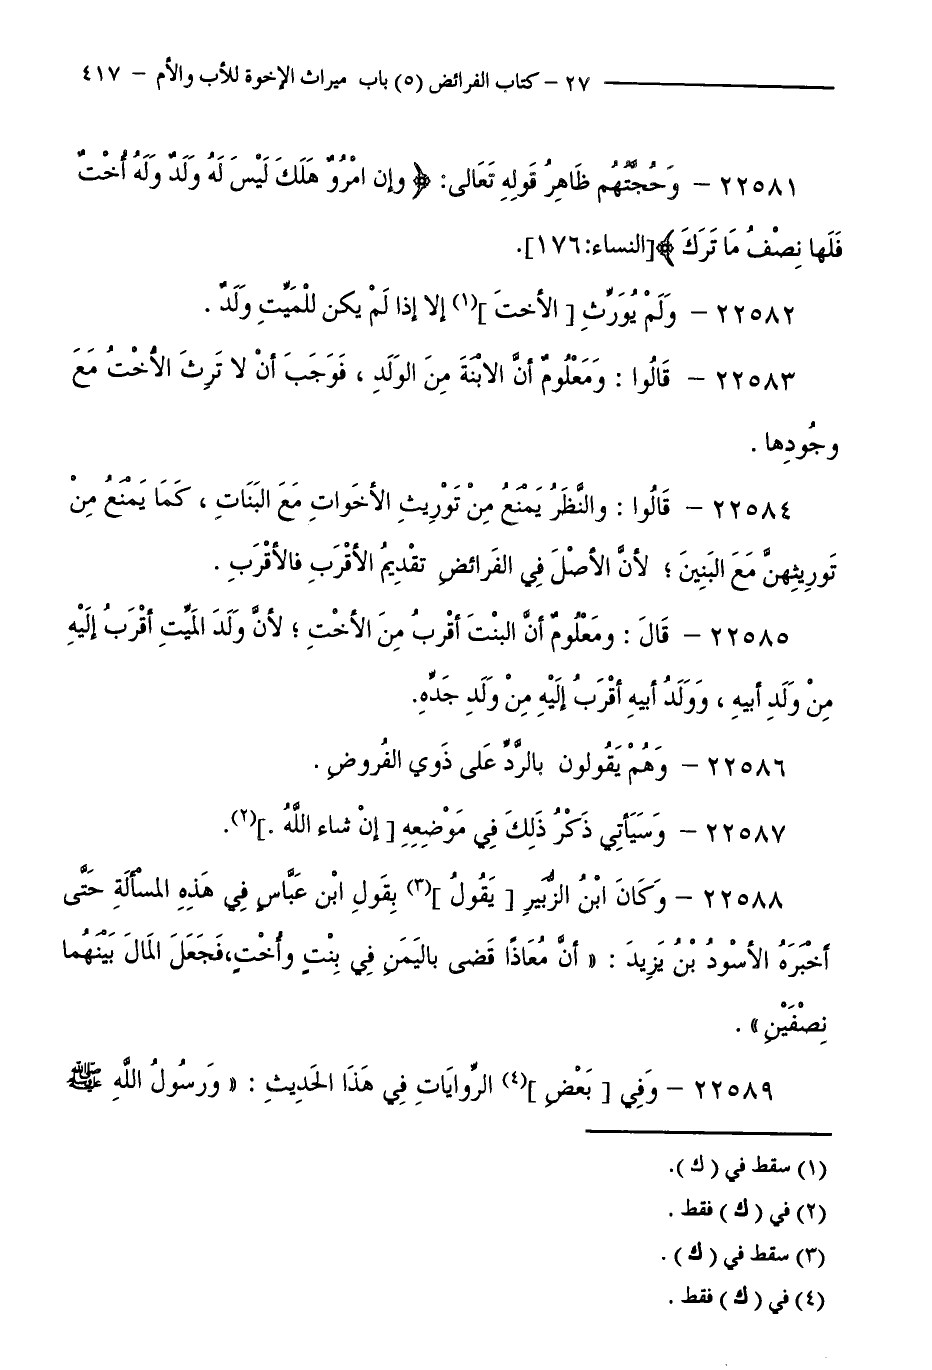 ٢٧ – كتاب الفرائض (٥) باب ميراث الإخوة للأب والأم – ٤١٧
٢٢٥٨١ – وَحُجَّتُهُم ظَاهِرُ قَولِهِ تَعَالى: ﴿ وإن امْرُوٌ هَلَكَ لَيْسَ لَهُ وَلَدٌ وَلَهُ أُخْتٌ
فَلَها نِصْفُ مَا تَرَكَ ﴾[النساء:١٧٦].
٢٢٥٨٢ – وَلَمْ يُوَرِّثِ [ الأختَ ](١) إلا إذا لَمْ يكن للْمَيِّتِ وَلَدٌ .
٢٢٥٨٣ – قَالُوا : وَمَعْلُومٌ أنَّ الابْنَةَ مِنَ الولَدِ ، فَوَجَبَ أنْ لا تَرِثَ الأُخْتُ مَعَ
وجُودِها .
٢٢٥٨٤ – قَالُوا : والنَّظَرُ يَمْنَعُ مِنْ تَوْرِيثِ الأخَواتِ مَعَ البَنَاتِ ، كَمَا يَمْنَعُ مِنْ
تَورِيثِهنَّ مَعَ البَنِينَ ؛ لأنَّ الأصْلَ فِي الفَرائضِ تقْدِيمُ الأقْرَبِ فالأقْرَبِ .
٢٢٥٨٥ – قَالَ : ومَعْلُومٌ أنَّ البنْتَ أقْربُ مِنَ الأخْتِ ؛ لأنَّ وَلَدَ المَيِّتِ أقْرَبُ إلَيْهِ
مِنْ وَلَدِ أبيهِ ، وَوَلَدُ أبيهِ أقْرَبُ إلَيْهِ مِنْ وَلَدِ جَدِّهِ.
٢٢٥٨٦ – وَهُمْ يَقُولون بالرَّدِّ عَلى ذَوي الفُروضِ .
٢٢٥٨٧ – وَسَيَأتِي ذَكْرُ ذَلِكَ فِي مَوْضِعِهِ [ إنْ شاء اللَّهُ .](٢).
٢٢٥٨٨ – وكَانَ ابْنُ الزُّبَيرِ [ يَقُولُ ](٣) بِقَولِ ابْن عَبَّاسٍ فِي هَذِهِ المسْألَةِ حَتَّى
أخْبَرَهُ الأسْودُ بْنُ يَزِيدَ : « أنَّ مُعَاذًا قَضى باليَمَنِ فِي بِنْتٍ وأُخْتٍ،فَجَعَلَ المَالَ بَيْنَهُما
نِصْفَيْنِ » .
٢٢٥٨٩ – وَفِي [ بَعْضِ ](٤) الرِّوايَاتِ فِي هَذَا الحَدِيثِ : « وَرَسُولُ اللَّهِ ﷺ
(١) سقط في ( ك ).
(٢) في ( ك ) فقط .
(٣) سقط في ( ك ) .
(٤) في ( ك ) فقط .